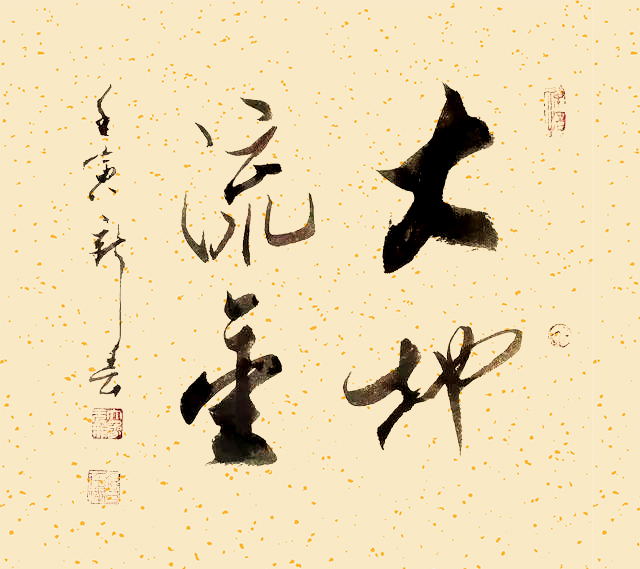 大地
流金
壬寅新春